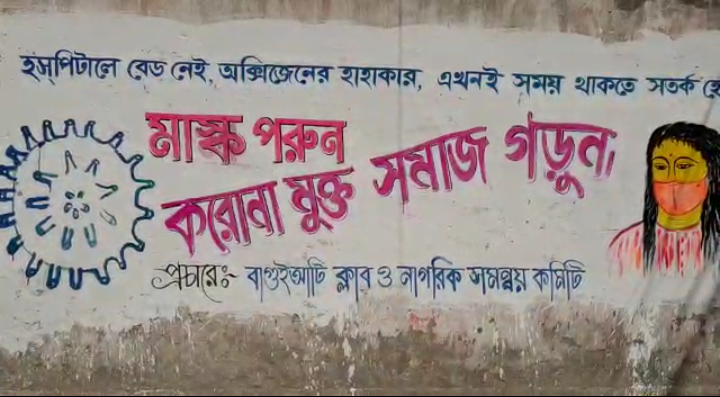 হসপিটালে বেড নেই, অক্সিজেনের হাহাকার, এখনই সময় থাকতে সতর্ক হো
মাস্ক পরুন
করোনা মুক্ত সমাজ গড়ুন,
প্রচারেঃ- বাগুইআটি ক্লাব ও নাগরিক সমন্বয় কমিটি